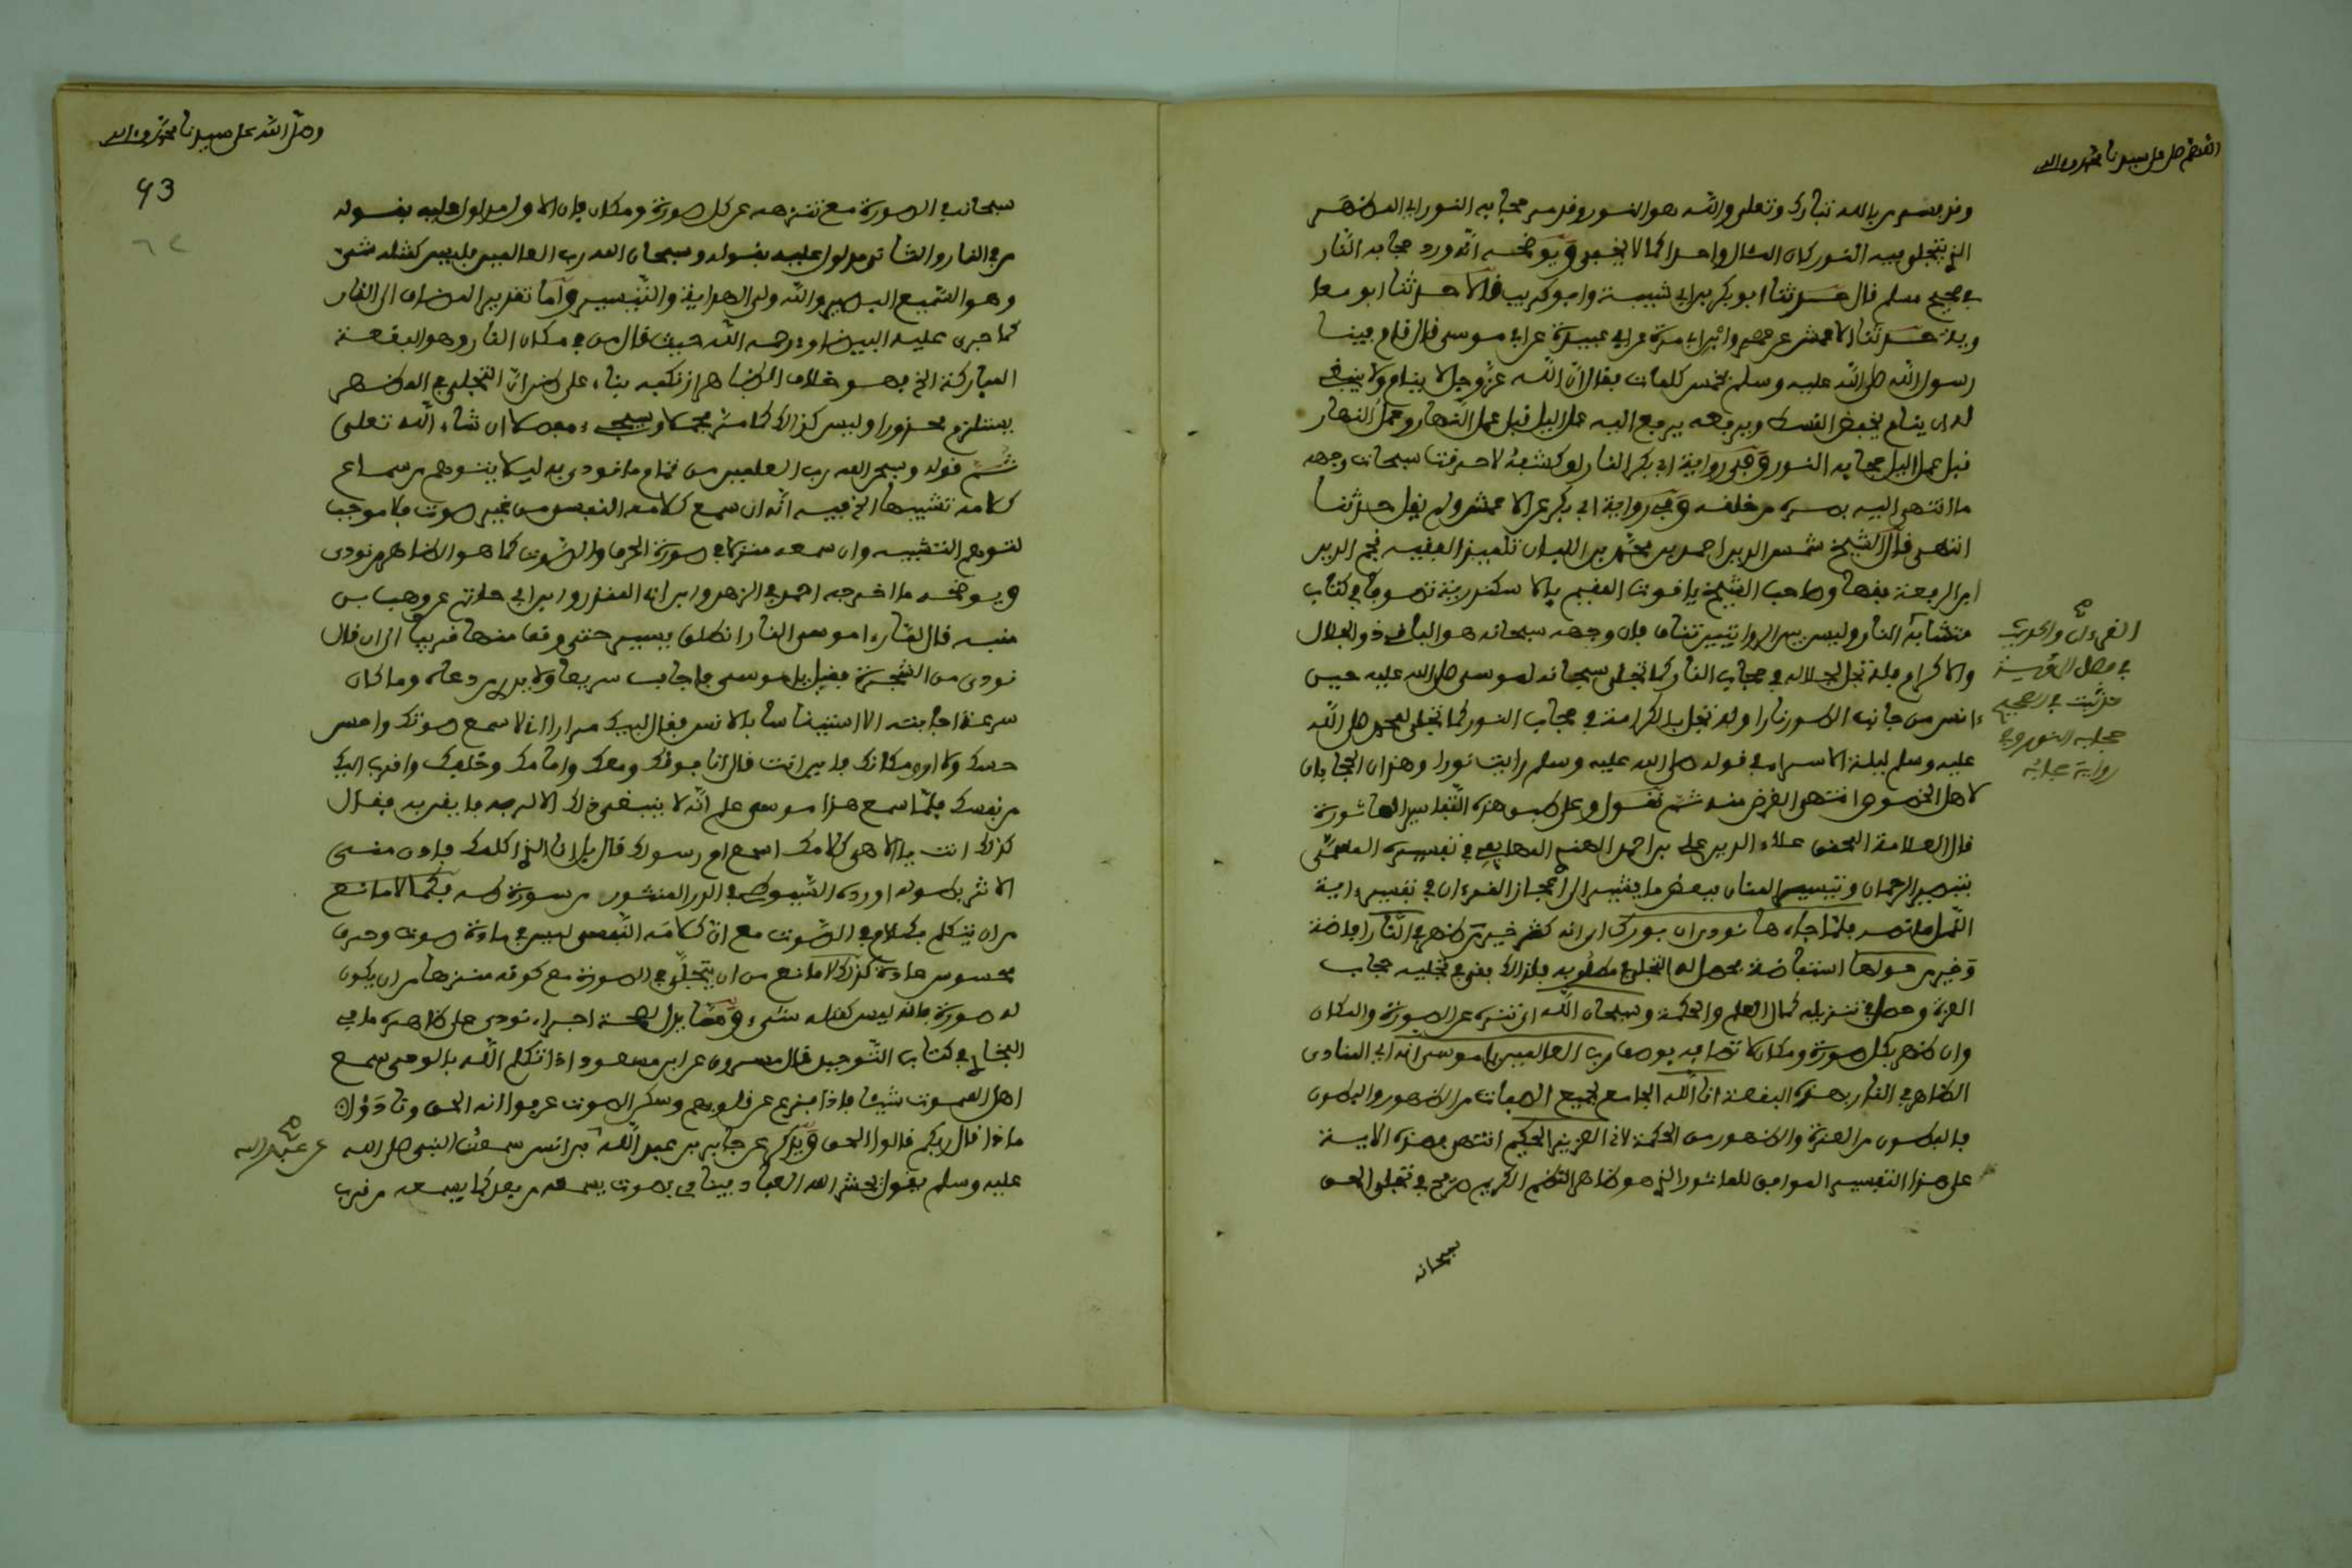 اللهم صل على سيدنا محمد وءاله
وقد فسر بالله تبارك وتعلى والله هو النور وفد مر حجابه النور اي المظهر
الذي يتجلى فيه النور كان المثال واحدا كما لا يخفى ويوضحه انه ورد حجابه النار
في صحيح مسلم قال حدثنا ابو بكر بن ابي شيبة وابو كريب قالا حدثنا ابو معا
وية حدثنا الاعمش عن عمرو بن مرة عن ابي عبيدة عن ابي موسى قال قام فينا
رسول الله صلى الله عليه وسلم بخمس كلمات فقال ان الله عز وجل لا ينام ولا ينبغي
له ان ينام يخفض القسط ويرفعه يرفع اليه عمل اليل قبل عمل النهار وعمل النهار
قبل عمل اليل حجابه النور وفي رواية ابي بكر النار لو كشفه لاحرقت سبحات وجهه
ما انتهى اليه بصره من خلقه وفي رواية ابي بكر عن الاعمش ولم يقل حدثنا
انتهى قال الشيخ شمس الدين احمد بن محمد بن اللبان تلميذ الفقيه نجم الدين
ابن الرفعة فقها وصاحب الشيخ ياقوت المقيم بالاسكندرية تصوفا في كتاب
متشابه القرءان والحديث وليس بين الروايتين تناف فان وجهه سبحانه هو الباقي ذو الجلال
والاكرام فلة تجل بجلاله في حجاب النار كما تجلى سبحانه لموسى صلى الله عليه حين
ءانس من جانب الطور نارا وله تجل بالكرامة في حجاب النور كما تجلى لمحمد صلى الله
عليه وسلم ليلة الاسراء في قوله صلى الله عليه وسلم رايت نورا وهذان الحجابان
لاهل الخصوص انتهى الغرض منه ثم نقول وعلى طبق هذه التفاسير الماثورة
قال العلامة المحقق علاء الدين علي بن احمد المهايمي في تفسيره المسمى
بتبصير الرحمان وتيسير المنان ببعض ما يشير الى اعجاز القرءان في تفسير ءاية
النمل ما نصه فلما جاءها نودي ان بورك اي انه كثر خير من ظهر في النار افاضة
وخير من حولها استفاضة بحصل له التجلي مطلوبه فلذلك بقي في تجليه حجاب
العزة وحصل في تنزيله كمال العلم والحكمة وسبحان الله اي تنزه عن الصورة والمكان
وان ظهر بكل صورة ومكان لاتصافه بوصف رب العالمين يا موسى انه اي المنادى
الظاهر في النار بهذه البقعة انا الله الجامع لجميع الصفات من الظهور والبطون
فالبطون من العزة والظهور من الحكمة لاني العزيز الحكيم انتهى فهذه الاية
على هذا التفسير الموافق للماثور الذي هو ظاهر النظم الكريم صريح في تجلى الحق
سبحانه
في فصل
في الصحيح
حجابه النور وفي
رواية حجابه
وصلى الله على سيدنا محمد وءاله
93
سبحانه في الصورة مع تنزهه عن كل صورة ومكان فان الاول مدلول عليه بقوله
من في النار والثاني مدلول عليه بقوله وسبحان الله رب العالمين فليس كمثله شىء
وهو السميع البصير والله ولي الهداية والتيسير واما تقدير المضاف الى النار
كما جرى عليه البيضاوي رحمه الله حيث قال من في مكان النار وهو البقعة
المباركة الخ فهو خلاف الظاهر ارتكبه بناء على ظن ان التجلي في المظهر
يستلزم محذورا وليس كذلك كما مر مجملا وسيجىء مفصلا ان شاء الله تعلى
ثم قوله وسبحن الله رب العلمين من تمام ما نودي به ليلا يتوهم من سماع
كلامه تشبيها الخ فيه انه ان سمع كلامه النفسي من غير صوت فلا موجب
لتوهم التشبيه وان سمعه متنزلا في صورة الحرف والصوت كما هو الظاهر من نودي
ويوضحه ما اخرجه احمد في الزهد وابن المنذر وابن ابي حاتم عن وهب بن
منبه قال لما رءا موسى النار انطلق يسير حتى وقف منها قريبا الى ان قال
نودي من الشجرة فقيل يا موسى فاجاب سريعا ولا يدري من دعاه وما كان
سرعة اجابته الا استيناسا بالانس فقال لبيك مرارا اني لاسمع صوتك واحس
حسك ولا ارى مكانك فاين انت قال انا فوقك ومعك وامامك وخلفك واقرب اليك
من نفسك فلما سمع هذا موسى علم انه لا ينبغي ذلك الا لربه فايقن به فقال
كذلك انت يا الاهي كلامك اسمع ام رسولك قال بل انا الذي اكلمك فادن مني
الاثر بطوله اورده السيوطي في الدر المنثور من سورة طه فكما لا مانع
من ان يتكلم بكلام في الصوت مع ان كلامه النفسي ليس في مادة صوت وحرف
محسوس عادة كذلك لا مانع من ان يتجلى في الصورة مع كونه منزها من ان يكون
له صورة فانه ليس كمثله شىء ومما يدل لصحة اجراء نودي على ظاهره ما في
البخاري في كتاب التوحيد قال مسروق عن ابن مسعود اذا تكلم الله بالوحي سمع
اهل السموت شيئا فاذا فزع عن قلوبهم وسكن الصوت عرفوا انه الحق ونادوا
ماذا قال ربكم قالوا الحق ويذكر عن جابر بن عبد الله عن عبد الله بن انس سمعت النبي صلى الله
عليه وسلم يقول يحشر الله العباد فيناديهم بصوت يسمعه من بعد كما يسمعه من قرب